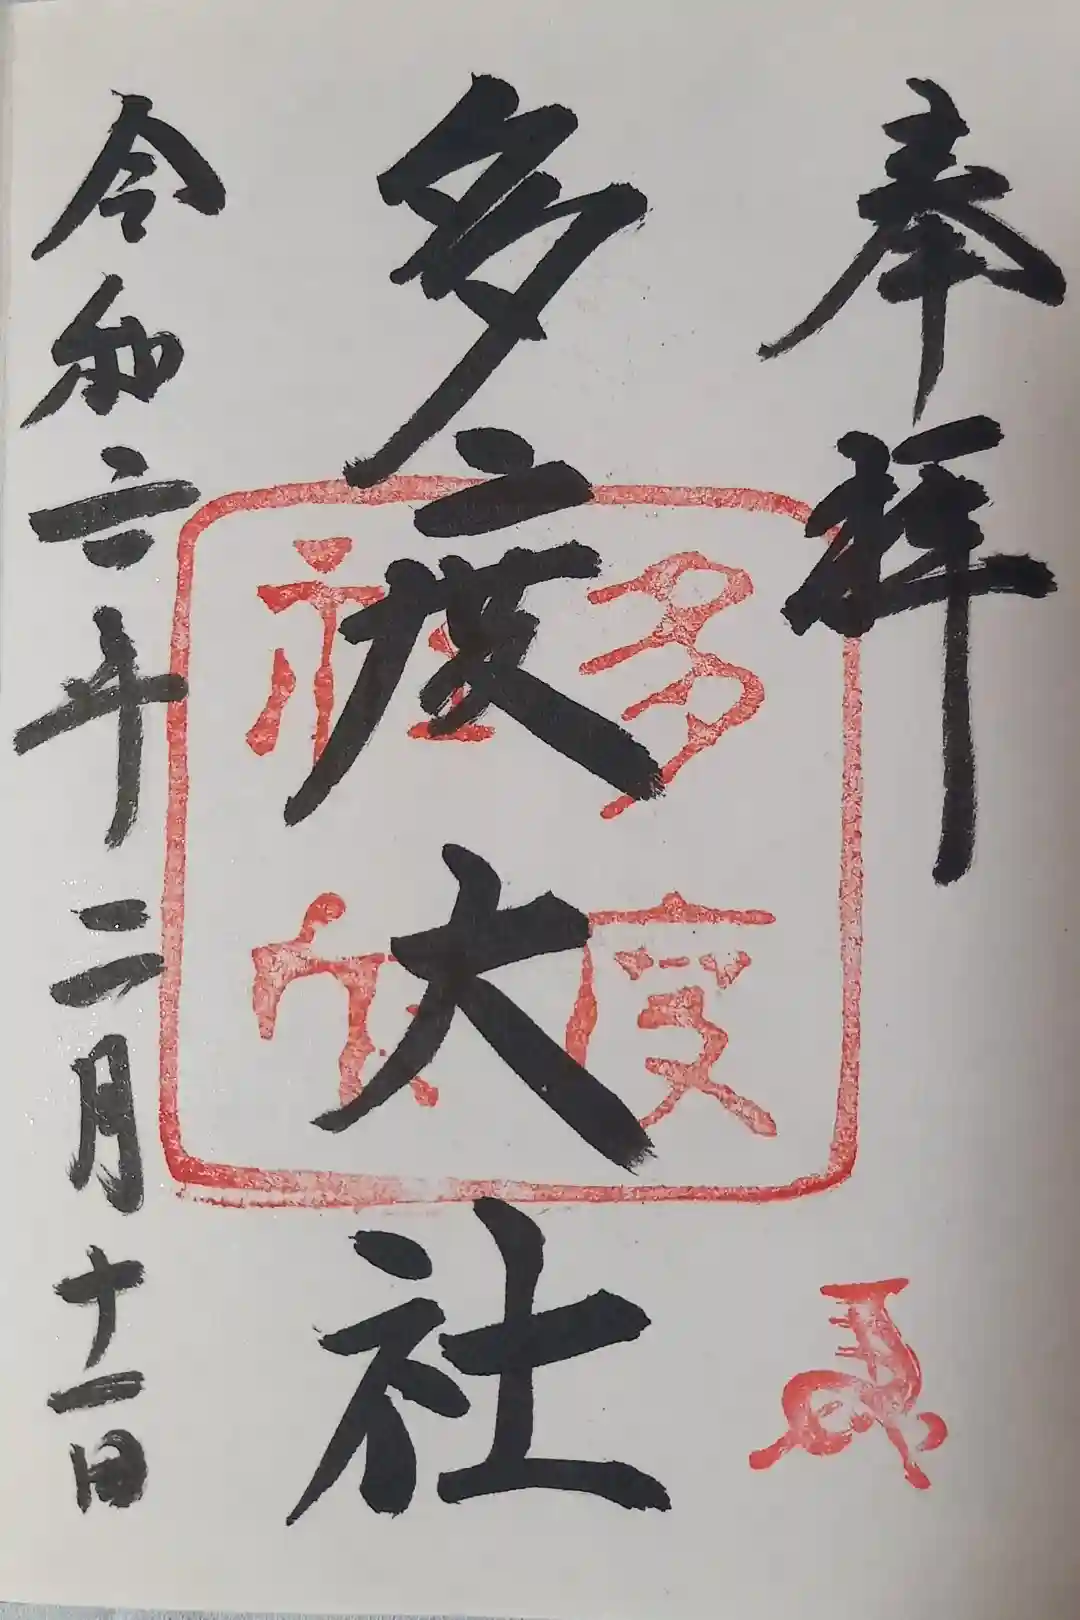 奉拝
多度大社
多度
大社
令和六年二月十一日